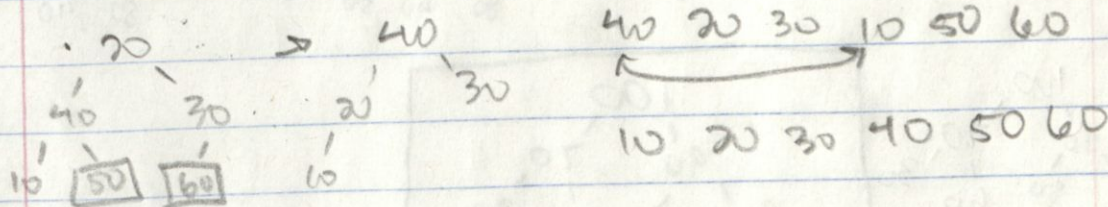 20 > 40 40 20 30 10 50 60
40 30 20 30
10 50 60 10 10 20 30 40 50 60